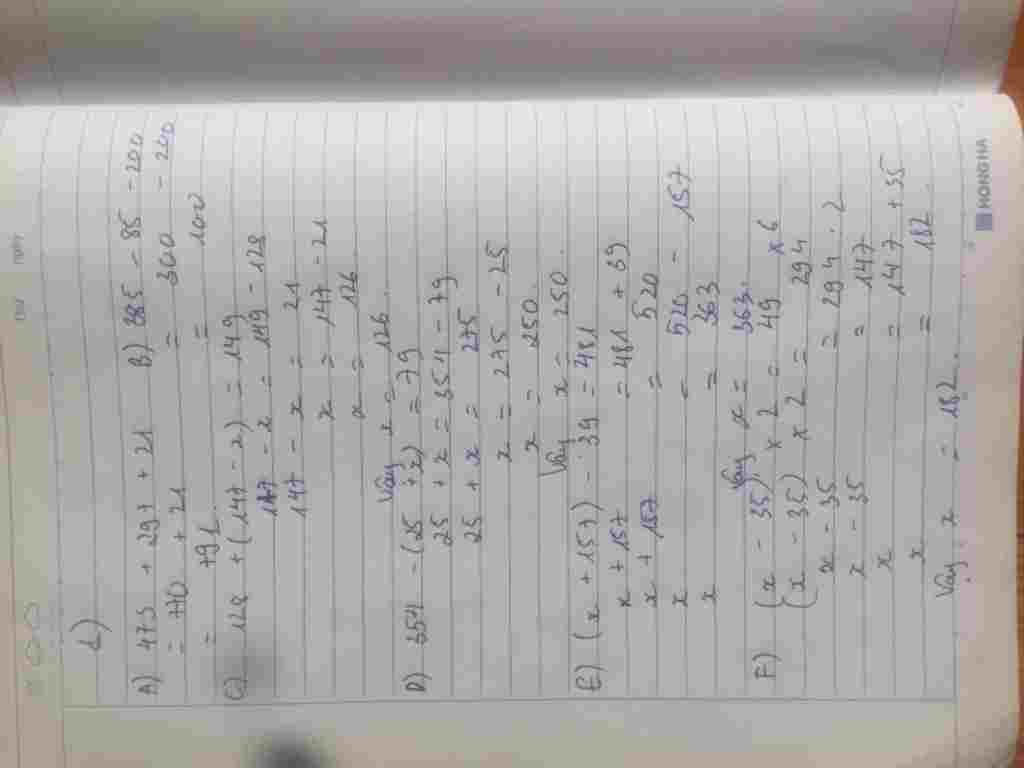 A) 473 + 297 + 21 B) 385 - 85 - 200
= 770 + 21 = 300 - 200
= 791 = 100
C) 128 + (147 - x) = 149
147 - x = 149 - 128
147 - x = 21
x = 147 - 21
x = 126
Vậy x = 126.
D) 354 - (25 + x) = 79
25 + x = 354 - 79
25 + x = 275
x = 275 - 25
x = 250.
Vậy x = 250.
E) (x + 157) - 39 = 481
x + 157 = 481 + 39
x + 157 = 520
x = 520 - 157
x = 363
Vậy x = 363.
F) (x - 35) x 2 = 49 x 6
(x - 35) x 2 = 294
x - 35 = 294 : 2
x - 35 = 147
x = 147 + 35
x = 182
Vậy x = 182.
HONG HA